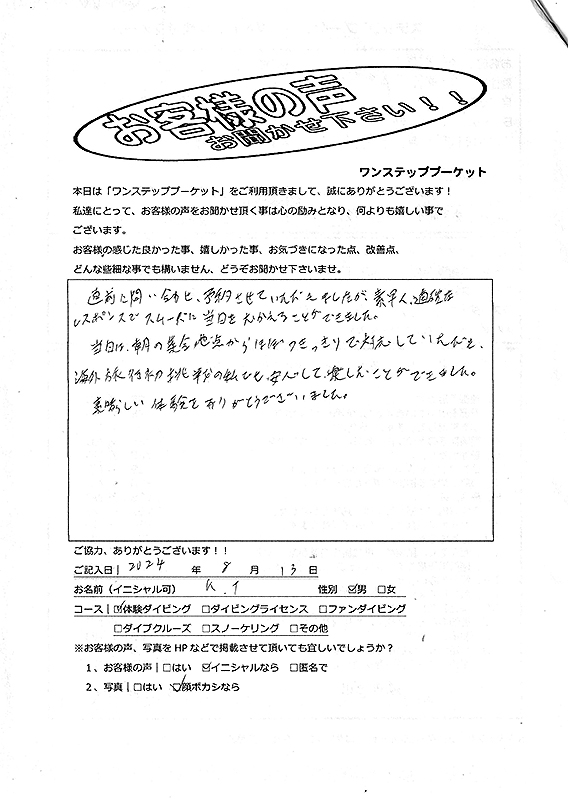 お客様の声
お聞かせ下さい！！
ワンステッププーケット
本日は「ワンステッププーケット」をご利用頂きまして、誠にありがとうございます！
私達にとって、お客様の声をお聞かせ頂く事は心の励みとなり、何よりも嬉しい事で
ございます。
お客様の感じた良かった事、嬉しかった事、お気づきになった点、改善点、
どんな些細な事でも構いません、どうぞお聞かせ下さいませ。
直前に問い合わせ、予約させていただきましたが、素早く、適切な
レスポンスでスムーズに当日をむかえることができました。
当日は、朝の集合地点からほぼつきっきりで対応していただき、
海外旅行初挑戦の私でも、安心して、楽しむことができました。
素晴らしい体験をありがとうございました。
ご協力、ありがとうございます！！
ご記入日| 2024 年 8 月 13 日
お名前（イニシャル可） K.T 性別 ☑男 □女
コース| ☑体験ダイビング □ダイビングライセンス □ファンダイビング
□ダイブクルーズ □スノーケリング □その他
※お客様の声、写真をHPなどで掲載させて頂いても宜しいでしょうか？
1、お客様の声|□はい ☑イニシャルなら □匿名で
2、写真|□はい ☑顔ボカシなら